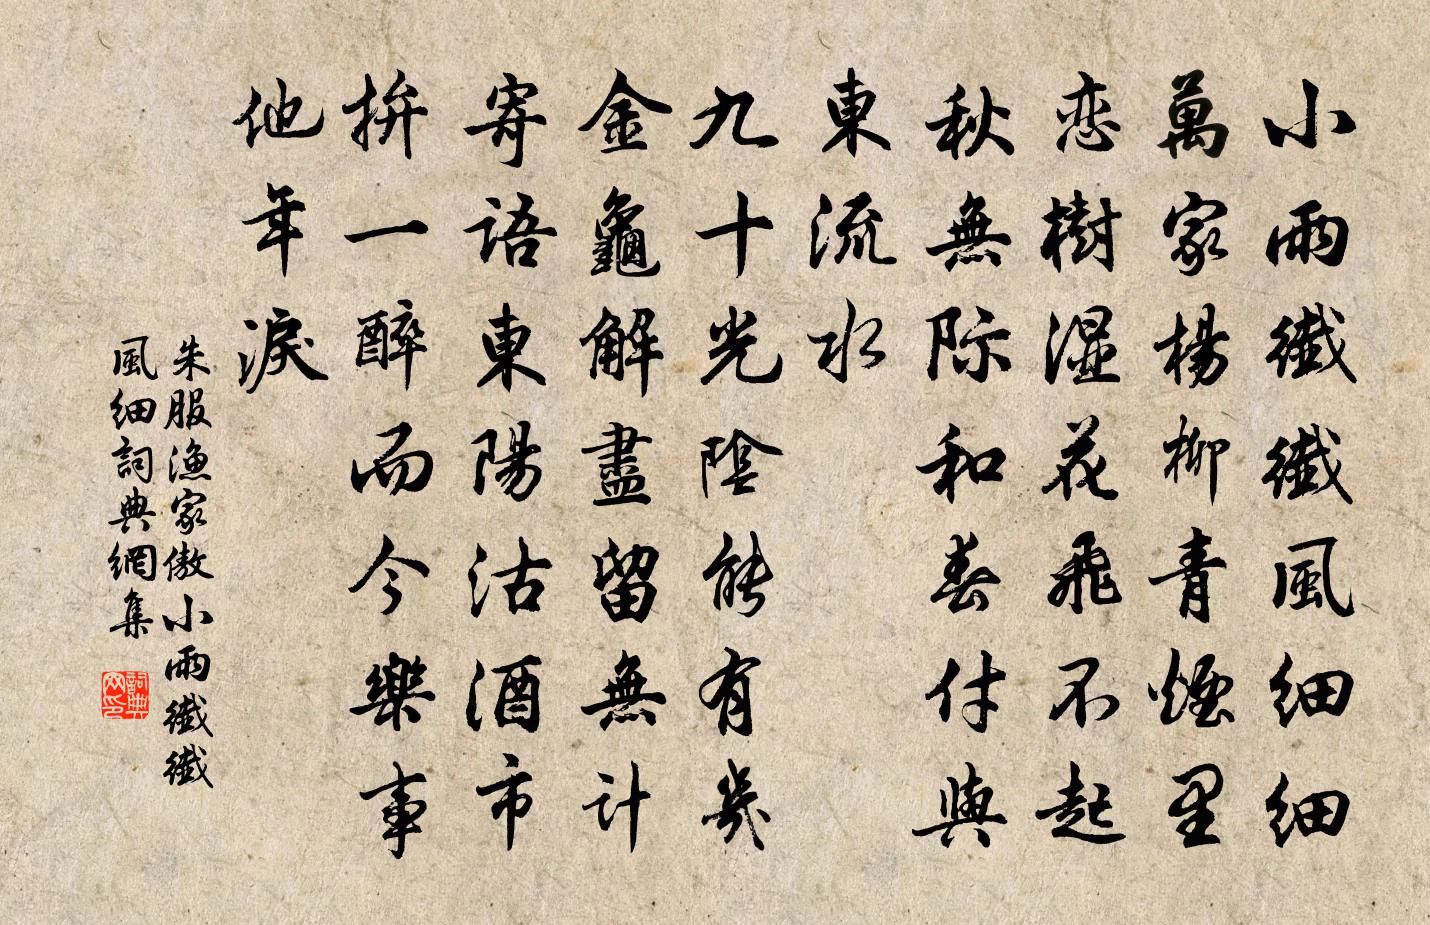 小雨纖纖風細細
萬家楊柳青煙里
恋樹湿花飛不起
秋無际和春付與
東流水
九十光陰能有幾
金龜解盡留無計
寄語東陽沽酒市
拚一醉而今樂事
他年淚
朱服漁家傲小雨纖纖
風細詞典網集
詞典网印